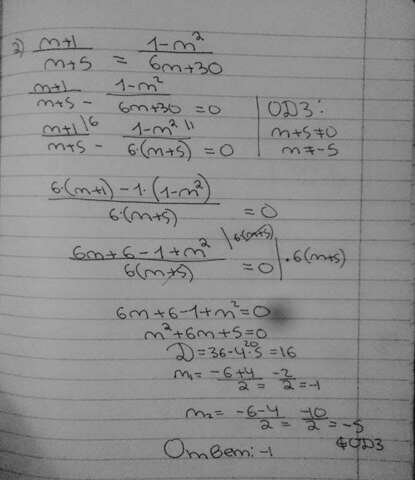 2) m+1/m+5 = 1-m²/6m+30
m+1/m+5 - 1-m²/6m+30 = 0
ОДЗ:
m+1\6/m+5 - 1-m²\1/6·(m+5) = 0
m+5≠0
m≠-5
6·(m+1)-1·(1-m²)/6·(m+5) = 0
6m+6-1+m²\6(m+5)/6(m+5) = 0 |·6(m+5)
6m+6-1+m²=0
m²+6m+5=0
D=36-4·5=16
20
m₁= -6+4/2 = -2/2 =-1
m₂= -6-4/2 = -10/2 =-5
∉ОДЗ
Ответ:-1